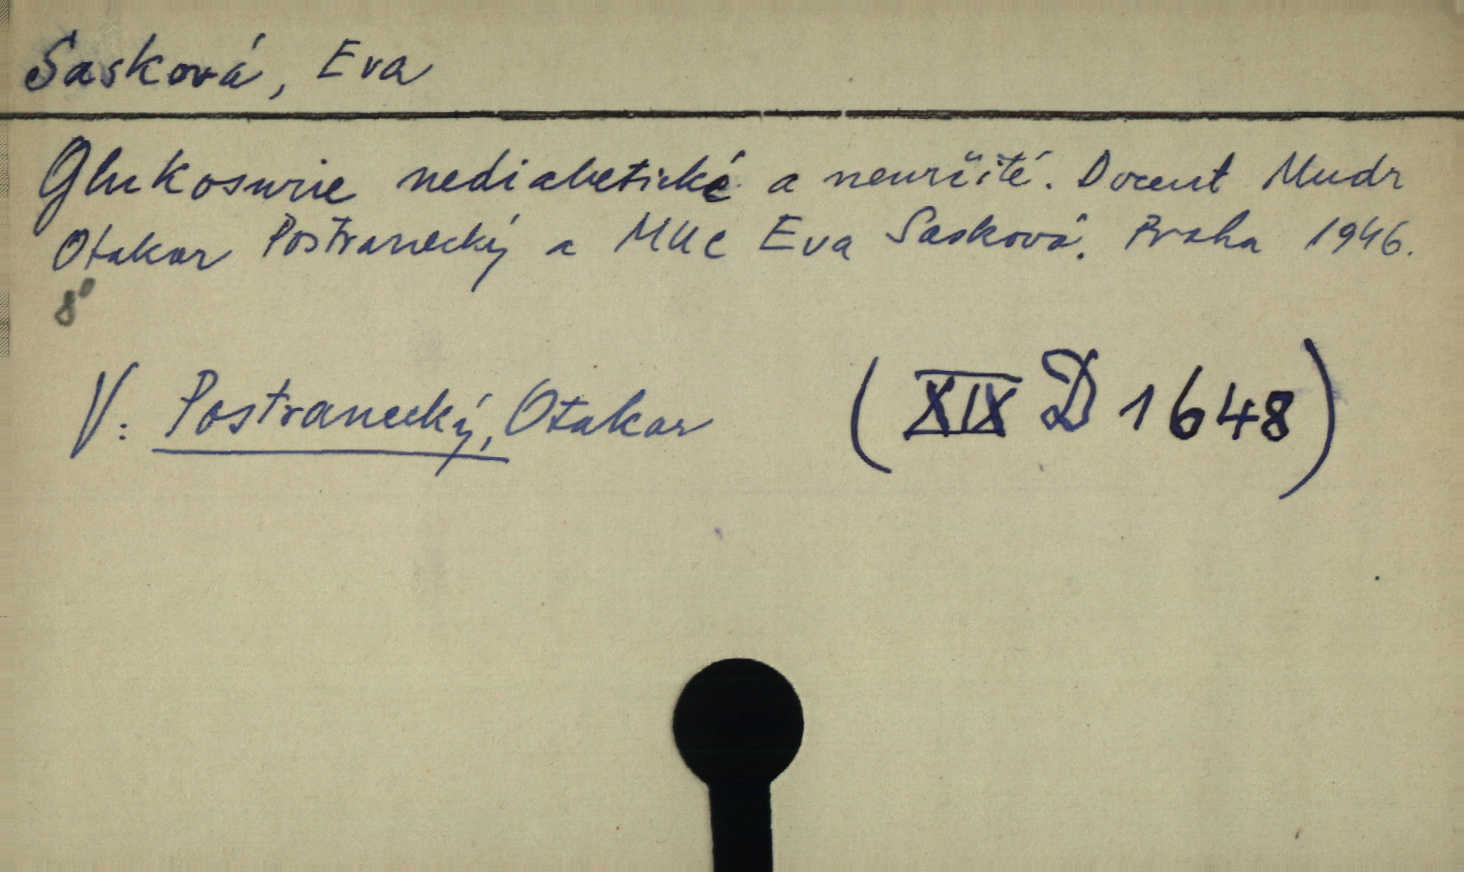 Sasková, Eva
Glukosurie nediabetické a neurčité. Docent Mudr
Otakar Postranecký a MUC Eva Sasková. Praha 1946.
8°
V: Postranecký, Otakar (XIX D 1648)